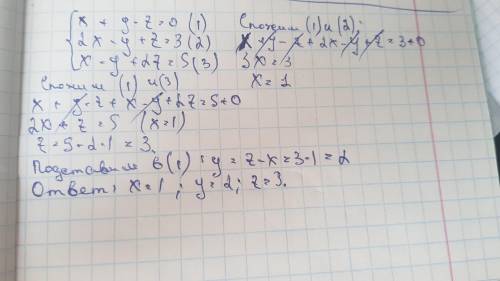 x + y - z = 0 (1)
2x - y + z = 3 (2)
x - y + 2z = 5 (3)
Сложим (1) и (2):
x + y - z + 2x - y + z = 3 + 0
3x = 3
x = 1
Сложим (1) и (3)
x + y - z + x - y + 2z = 5 + 0
2x + z = 5 (x = 1)
z = 5 - 2·1 = 3.
Подставим в (1): y = z - x = 3 - 1 = 2
Ответ: x = 1; y = 2; z = 3.